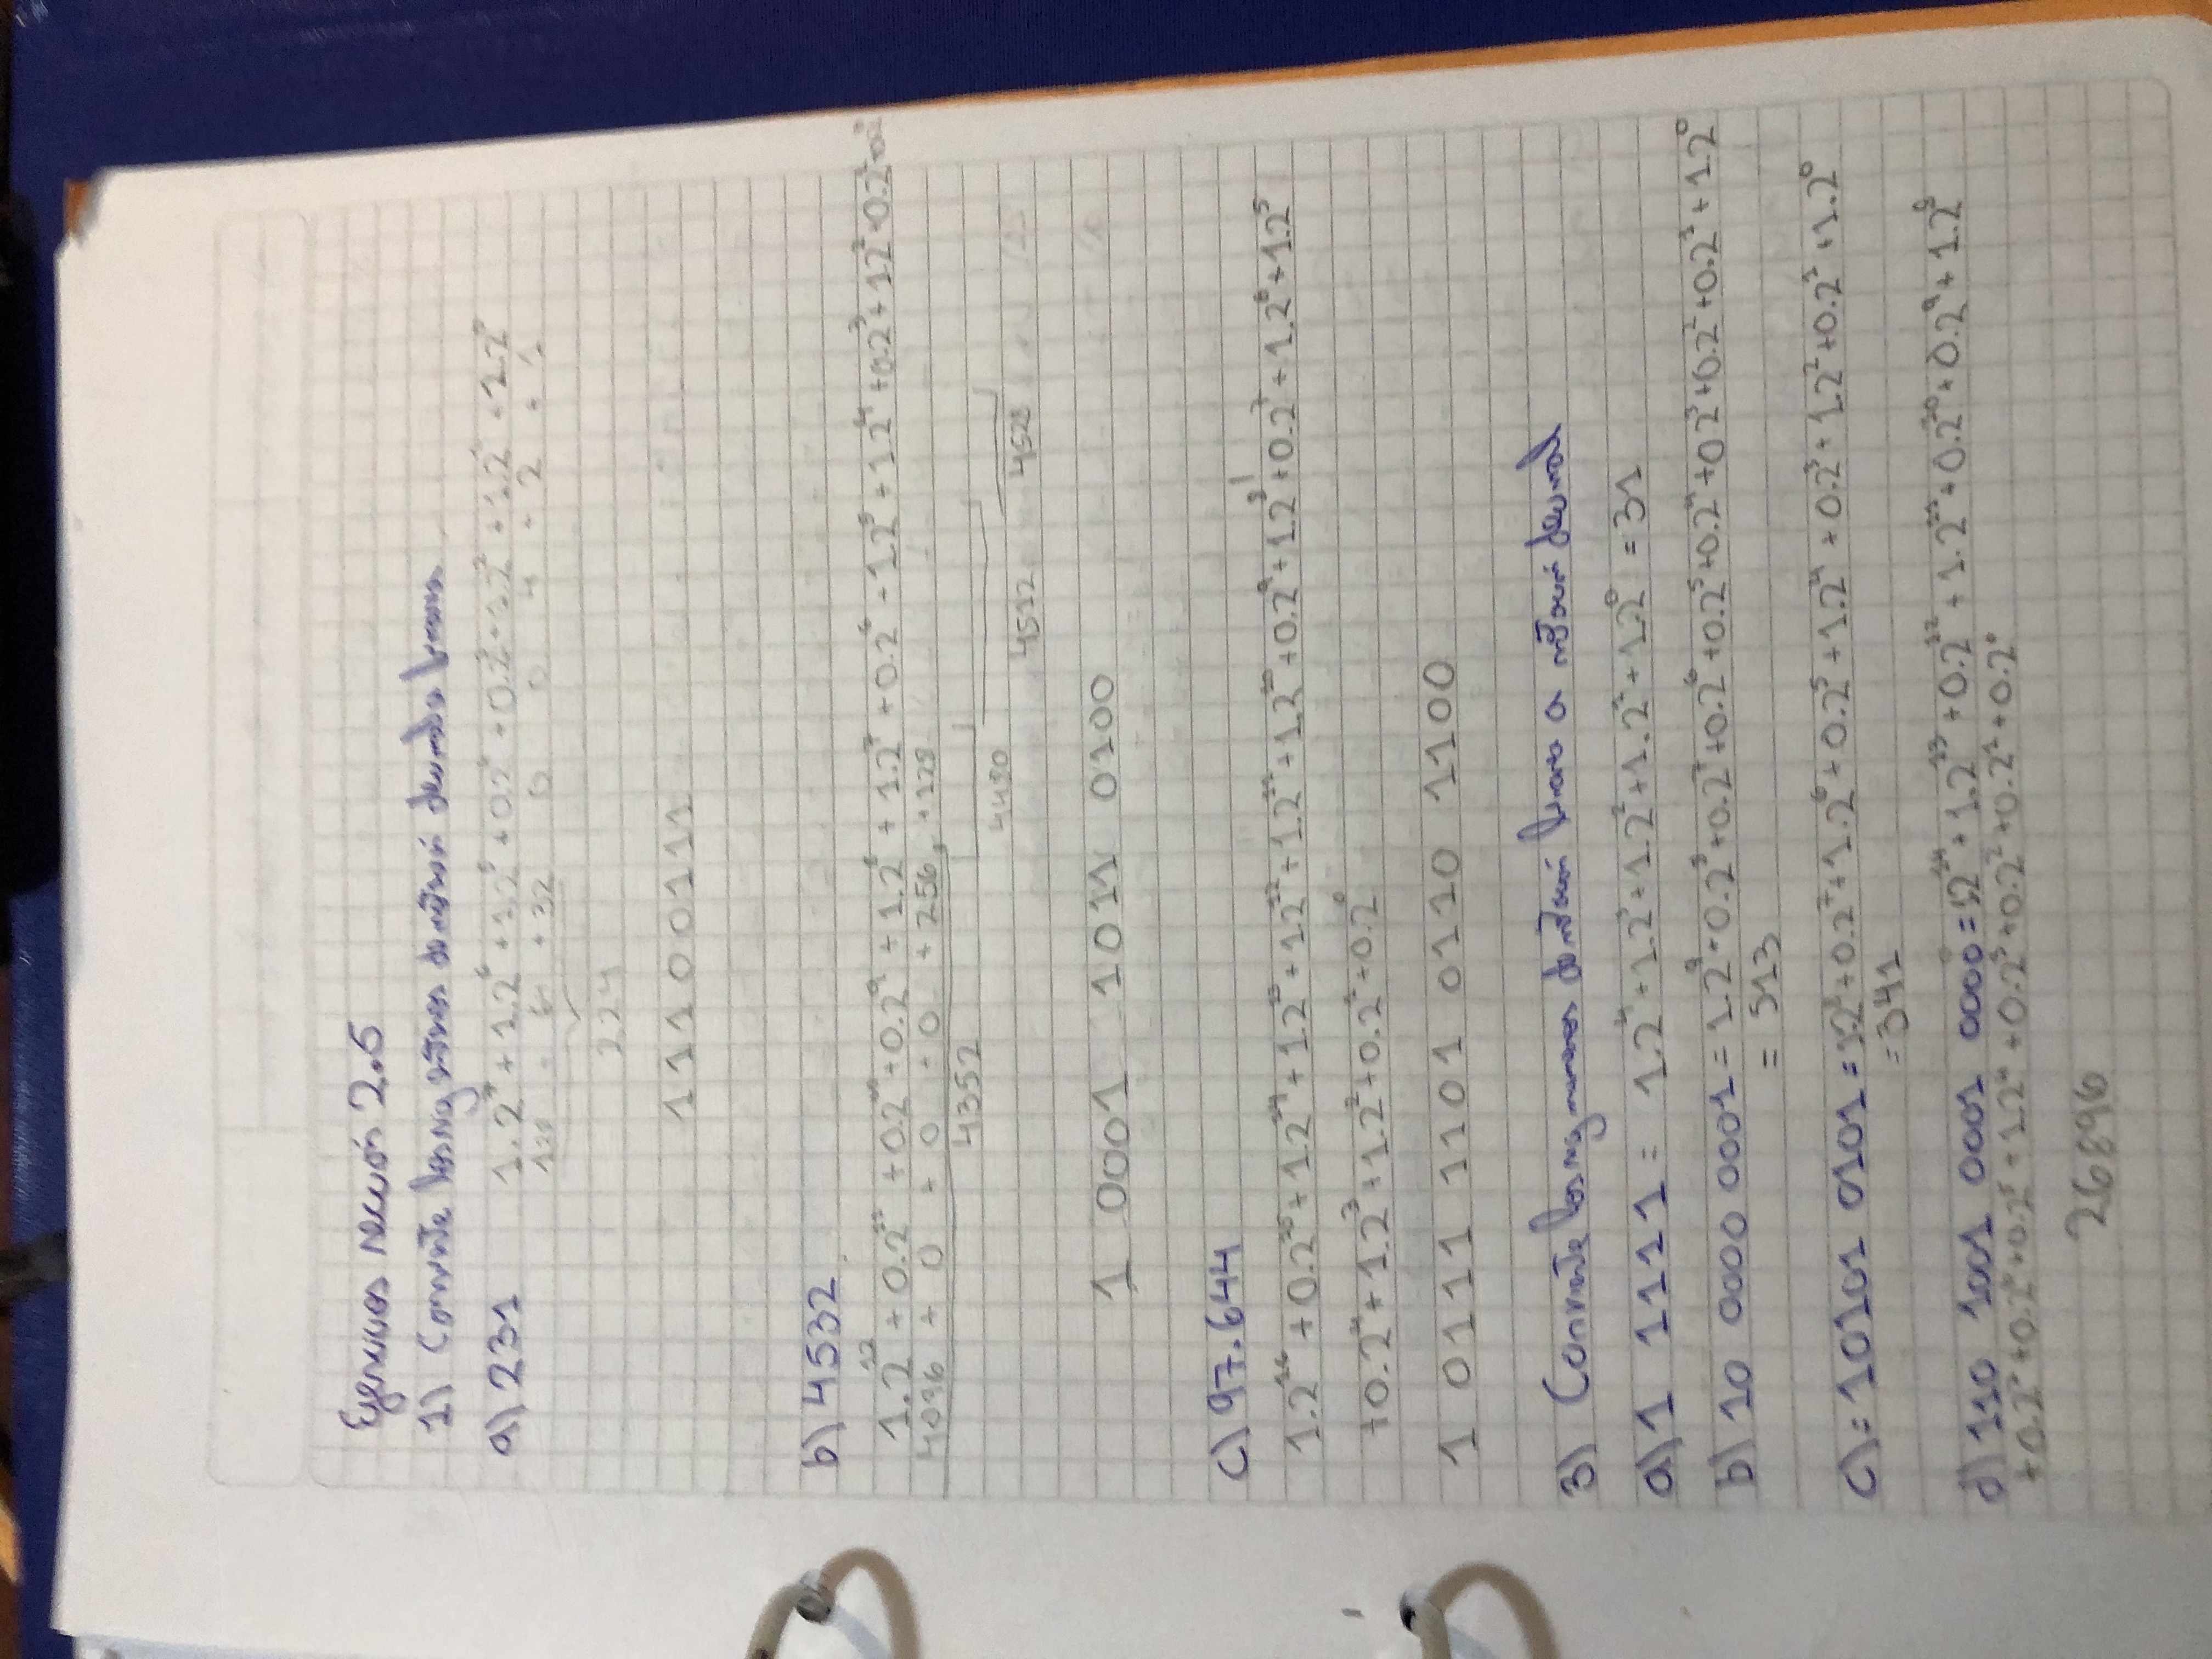 Ejercicios sección 2.5
1) Convierte los sig enteros de notación decimal a binaria
a) 231 1.2^7 + 1.2^6 + 1.2^5 + 0.2^4 + 0.2^3 + 1.2^2 + 1.2^1 + 1.2^0
128 + 64 + 32 0 0 4 + 2 + 1
224
11100111
b) 4532
1.2^12 + 0.2^11 + 0.2^10 + 0.2^9 + 1.2^8 + 1.2^7 + 0.2^6 + 1.2^5 + 1.2^4 + 0.2^3 + 1.2^2 + 0.2^1 + 0.2^0
4096 + 0 + 0 + 0 + 256 + 128
4352
4480
4512 4528
1 0001 1011 0100
c) 97.644
1.2^16 + 0.2^15 + 1.2^14 + 1.2^13 + 1.2^12 + 1.2^11 + 1.2^10 + 0.2^9 + 1.2^8 + 0.2^7 + 1.2^6 + 1.2^5
+ 0.2^4 + 1.2^3 + 1.2^2 + 0.2^1 + 0.2^0
1 0111 1101 0110 1100
3) Convierte los sig numeros de notación binaria a notación decimal
a) 1 1111 = 1.2^4 + 1.2^3 + 1.2^2 + 1.2^1 + 1.2^0 = 31
b) 10 0000 0001 = 1.2^9 + 0.2^8 + 0.2^7 + 0.2^6 + 0.2^5 + 0.2^4 + 0.2^3 + 0.2^2 + 0.2^1 + 1.2^0
= 513
c) = 10101 0101 = 1.2^8 + 0.2^7 + 1.2^6 + 0.2^5 + 1.2^4 + 0.2^3 + 1.2^2 + 0.2^1 + 1.2^0
= 341
d) 110 1001 0001 0000 = 1.2^14 + 1.2^13 + 0.2^12 + 1.2^11 + 0.2^10 + 0.2^9 + 1.2^8
+ 0.2^7 + 0.2^6 + 0.2^5 + 1.2^4 + 0.2^3 + 0.2^2 + 0.2^1 + 0.2^0
26896